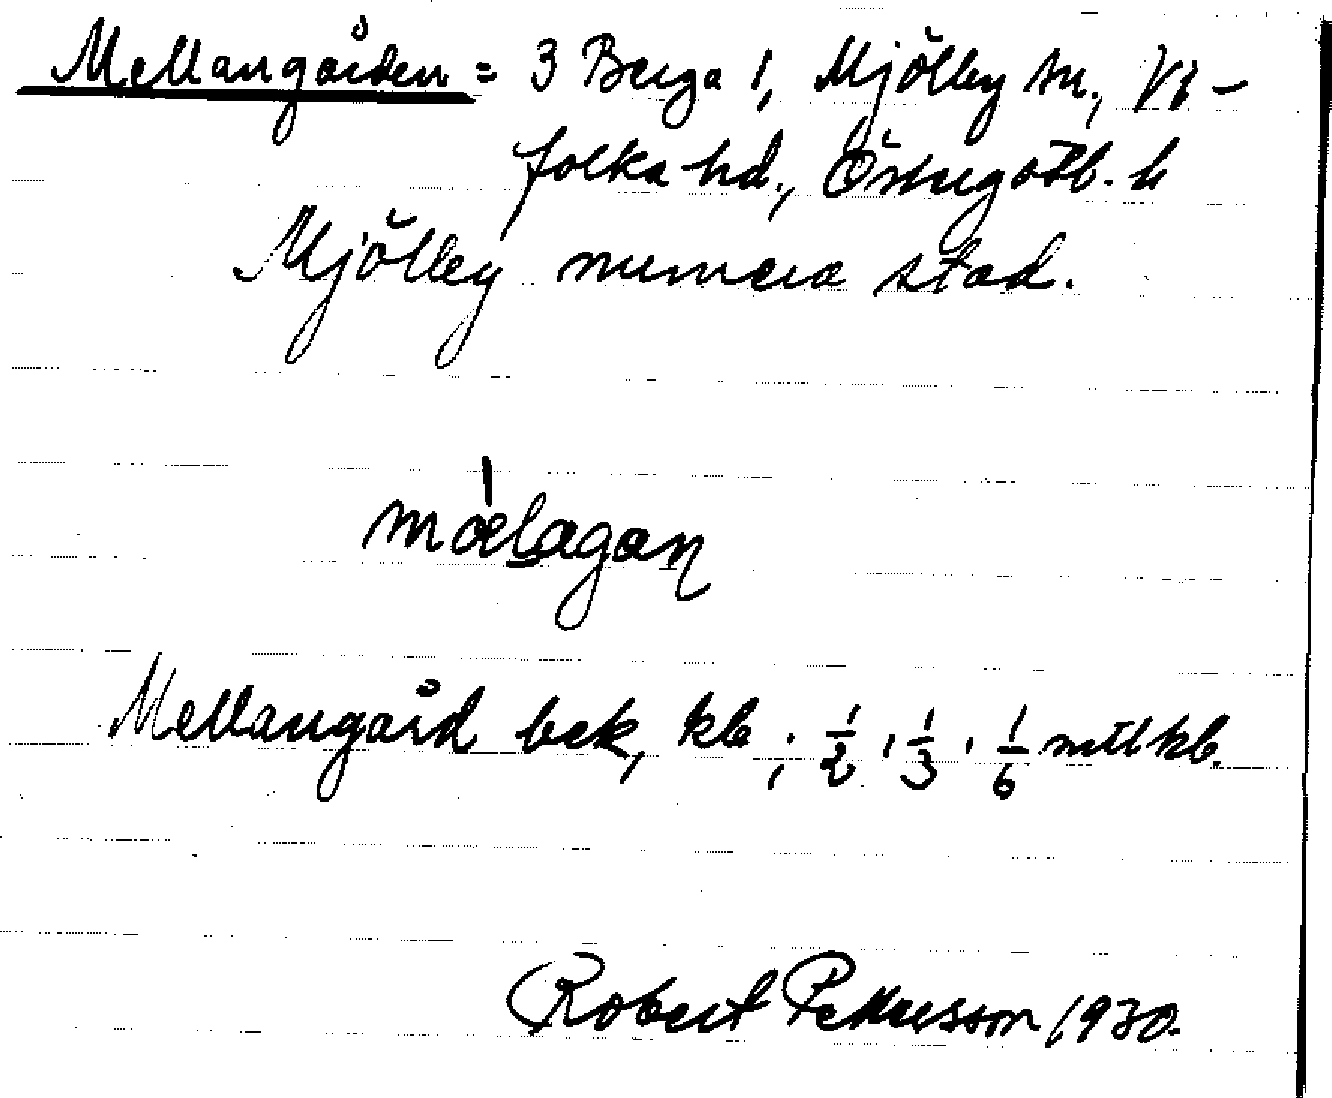 Mellangården = 3 Berga 1, Mjölby sn., Vi-
folka hd., Östergötl. l.
Mjölby numera stad.
mælagan
Mellangård bek, kb; 1/2, 1/3, 1/6 mtl kb.
Robert Pettersson 1930.